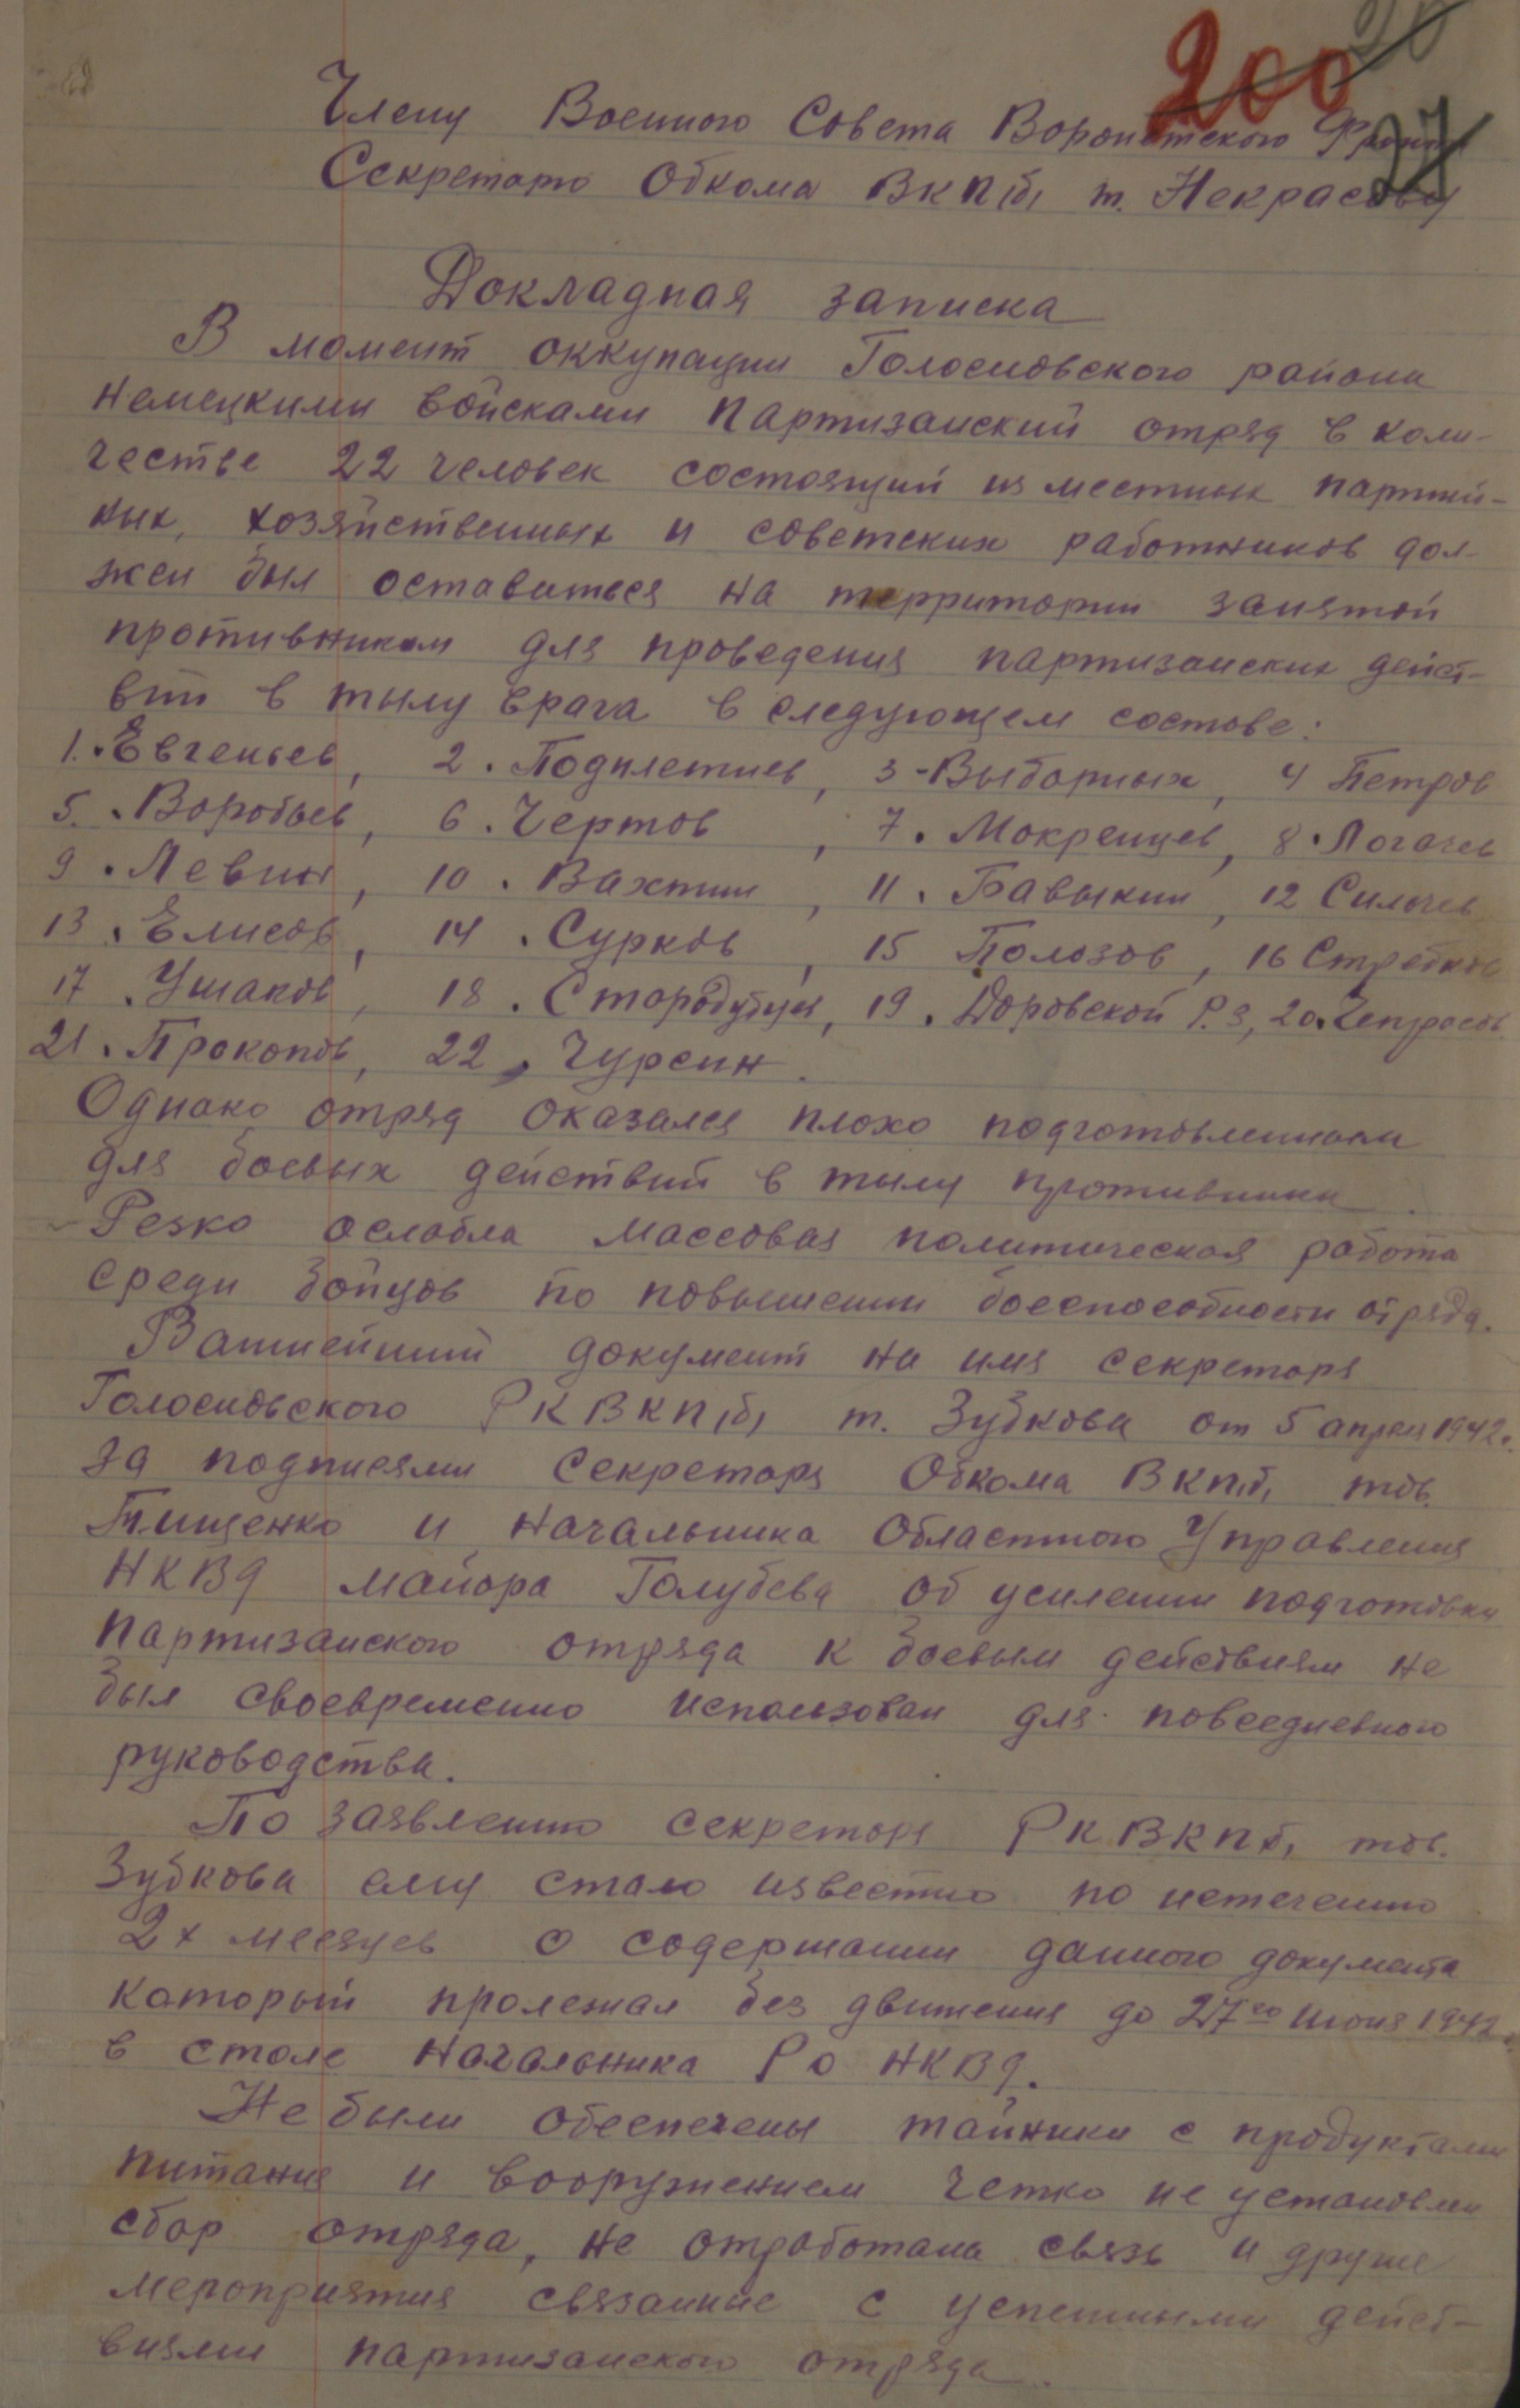 200
20
27
Члену Военного Совета Воронежского Фронта
Секретарю Обкома ВКП(б) т. Некрасову
Докладная записка
В момент оккупации Голосновского района
немецкими войсками партизанский отряд в коли-
честве 22 человек состоящий из местных партий-
ных, хозяйственных и советских работников дол-
жен был оставиться на территории занятой
противником для проведения партизанских дейст-
вий в тылу врага в следующем составе:
1. Евгеньев, 2. Подплетнев, 3 - Выборных, 4 Петров
5. Воробьев, 6. Чертов, 7. Мокренцев, 8. Логачев
9. Левин, 10. Вахтин, 11. Бавыкин, 12 Силачев
13. Елисов, 14. Сурков, 15 Полозов, 16 Стребков
17. Ушаков, 18. Стородубцев, 19. Доровской Р.З, 20. Чепрасов
21. Прокопов, 22. Чурсин.
Однако отряд оказался плохо подготовленным
для боевых действий в тылу противника.
Резко ослабла массовая политическая работа
среди бойцов по повышении боеспособности отряда.
Важнейший документ на имя секретаря
Голосновского РК ВКП(б) т. Зубкова от 5 апреля 1942г.
за подписями Секретаря Обкома ВКП(б) тов.
Тищенко и Начальника Областного Управления
НКВД майора Голубева об усилении подготовки
партизанского отряда к боевым действиям не
был своевременно использован для повседневного
руководства.
По заявлению секретаря РК ВКПб) тов.
Зубкова ему стало известно по истечению
2х месяцев о содержании данного документа
который пролежал без движения до 27го июня 1942г.
в столе Начальника РО НКВД.
Не были обеспечены тайники с продуктами
питания и вооружением четко не установлен
сбор отряда, не отработана связь и другие
мероприятия связанные с успешными дейст-
виями партизанского отряда.